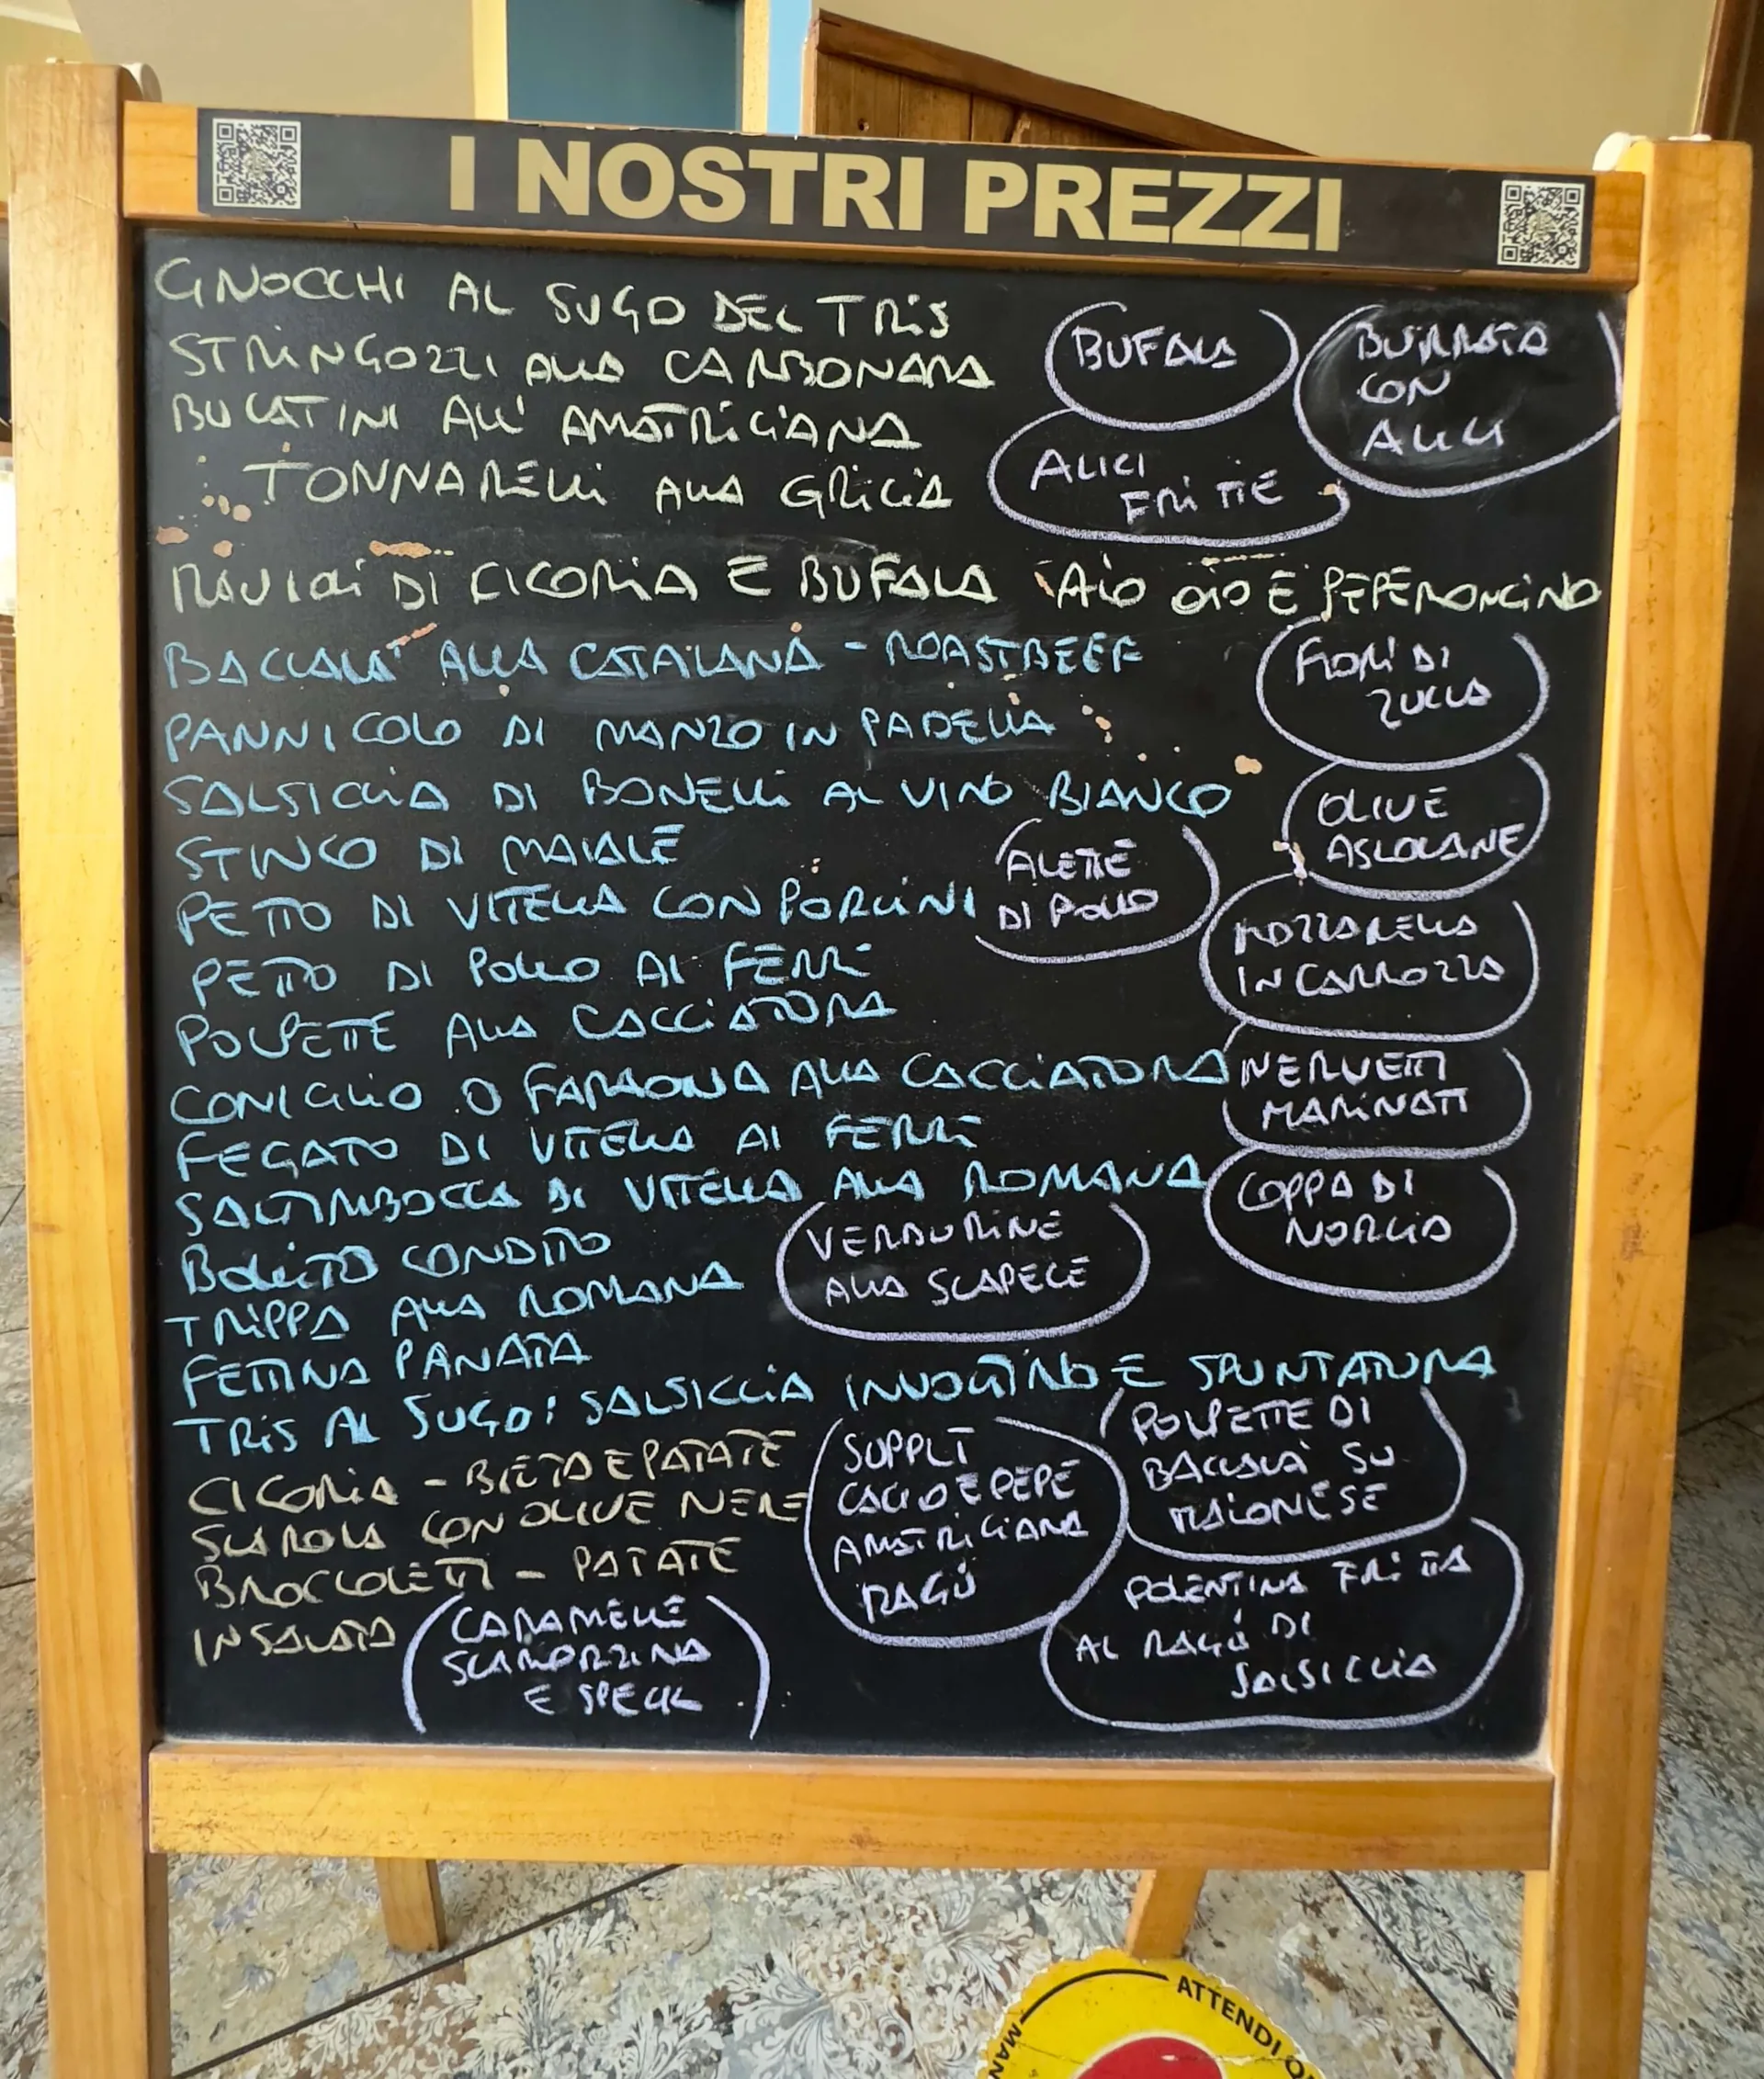 I NOSTRI PREZZI
GNOCCHI AL SUGO DEL TRIS
STRINGOZZI ALLA CARBONARA
BUCATINI ALL' AMATRICIANA
TONNARELLI ALLA GRICIA
BUFALA
BURRATA
CON
ALICI
ALICI
FRITTE
RAVIOLI DI CICORIA E BUFALA AIO OIO E PEPERONCINO
BACCALA' ALLA CATALANA - ROASTBEEF
PANNICOLO DI MANZO IN PADELLA
SALSICCIA DI BONELLI AL VINO BIANCO
STINCO DI MAIALE
PETTO DI VITELLA CON PORCINI
PETTO DI POLLO AI FERRI
POLPETTE ALLA CACCIATORA
CONIGLIO O FARAONA ALLA CACCIATORA
FEGATO DI VITELLA AI FERRI
SALTIMBOCCA DI VITELLA ALLA ROMANA
BOLLITO CONDITO
TRIPPA ALLA ROMANA
FETTINA PANATA
TRIS AL SUGO: SALSICCIA INVOLTINO E SPUNTATURA
FIORI DI
ZUCCA
OLIVE
ASCOLANE
ALETTE
DI POLLO
MOZZARELLA
IN CARROZZA
NERVETTI
MARINATI
COPPA DI
NORCIA
VERDURINE
ALLA SCAPECE
CICORIA - BIETA E PATATE
SCAROLA CON OLIVE NERE
BROCCOLETTI - PATATE
INSALATA
CARAMELLE
SCAMORZINA
E SPECK
SUPPLI
CACIO E PEPE
AMATRICIANA
RAGÙ
POLPETTE DI
BACCALÀ SU
MAIONESE
POLENTINA FRITTA
AL RAGÙ DI
SALSICCIA
ATTENDI